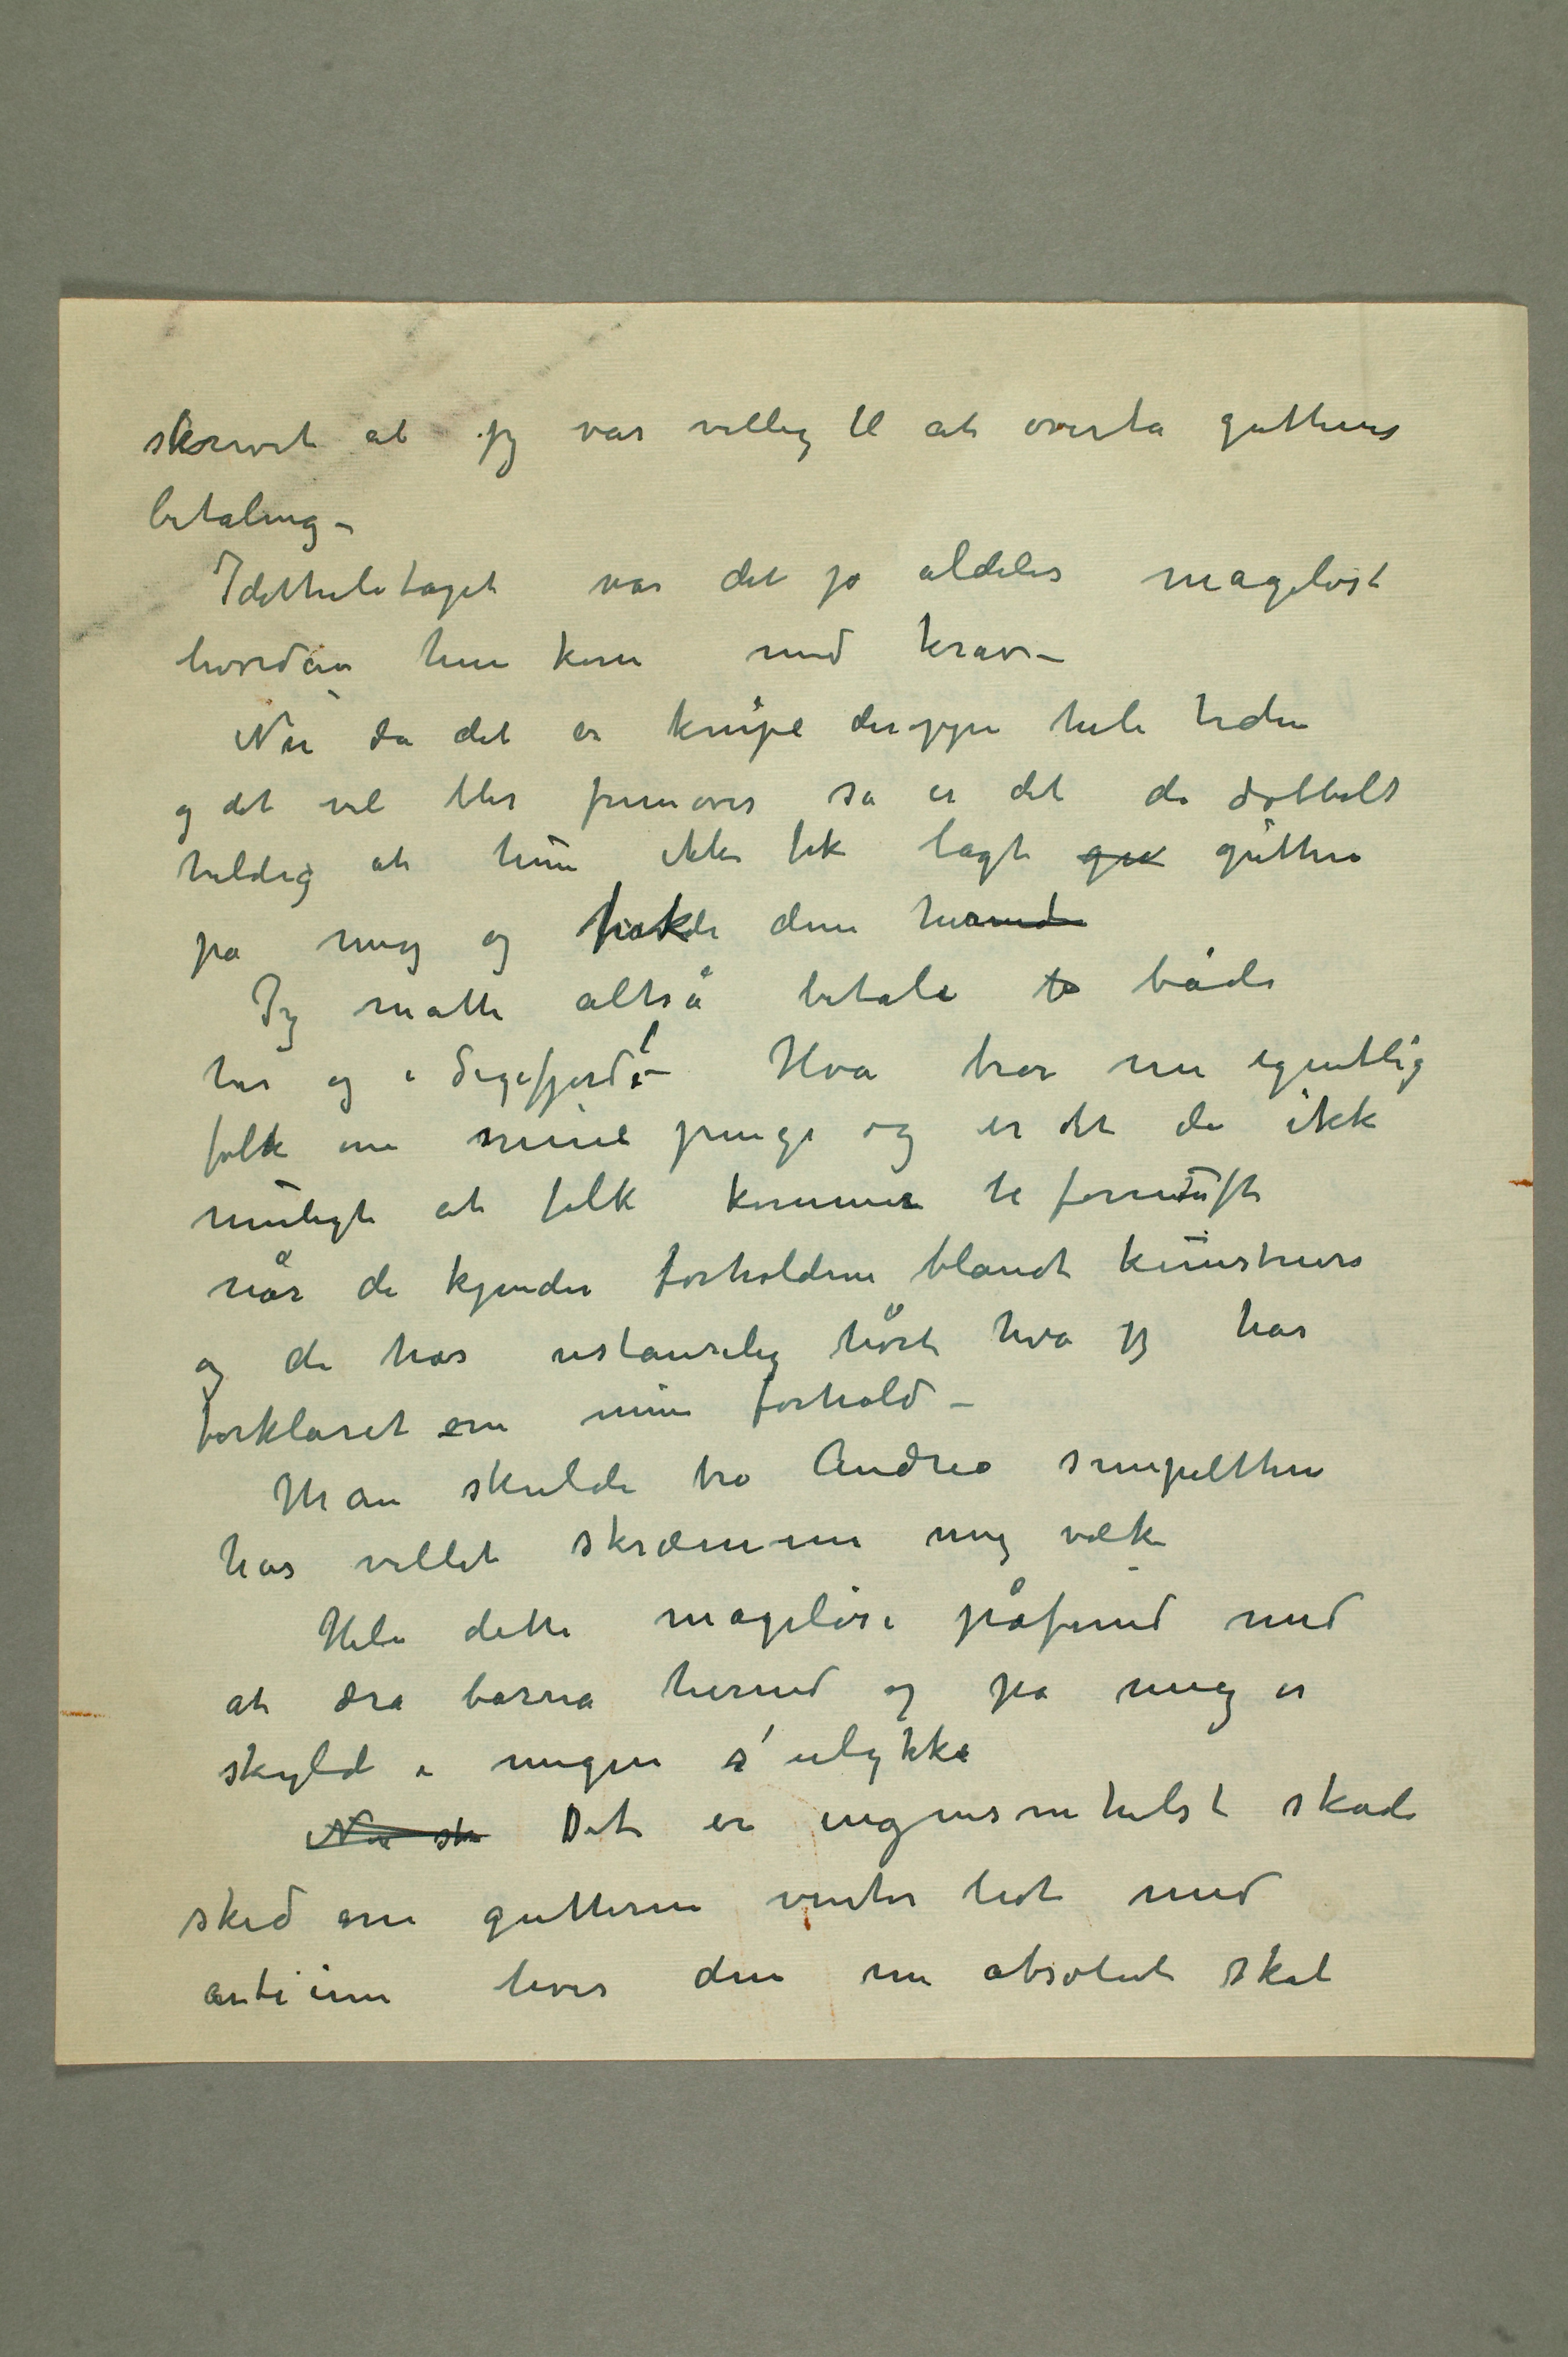 skrevet at jeg var villig til at overta guttenes
betaling –
Idetheletaget var det jo aldeles mageløst
hvordan hun kom med krav –
Nu da det er knipe deroppe hele tiden
og det vil bli fremover så er det da dobbelt
heldig at hun ikke fik lagt gu guttene
på meg og trække dem herned
Jeg måtte altså betale to både
her og i Sigefjord! – Hva tror nu egentlig
folk om mine penge og er det da ikke
muligt at folk kommer til fornuft
når de kjender forholdene blandt kunstnere
og de har ustanselig hørt hva jeg har
forklaret om mine forhold –
Man skulde tro Andrea simpelthen
har villet skræmme mig væk –
Hele dette mageløse påfund med
at dra barna herned og på meg er
skyld i megen s ulykke
Nu sk Det er ingensomhelst skade
sked om gutterne venter lidt med
artium hvis den nu absolut skal